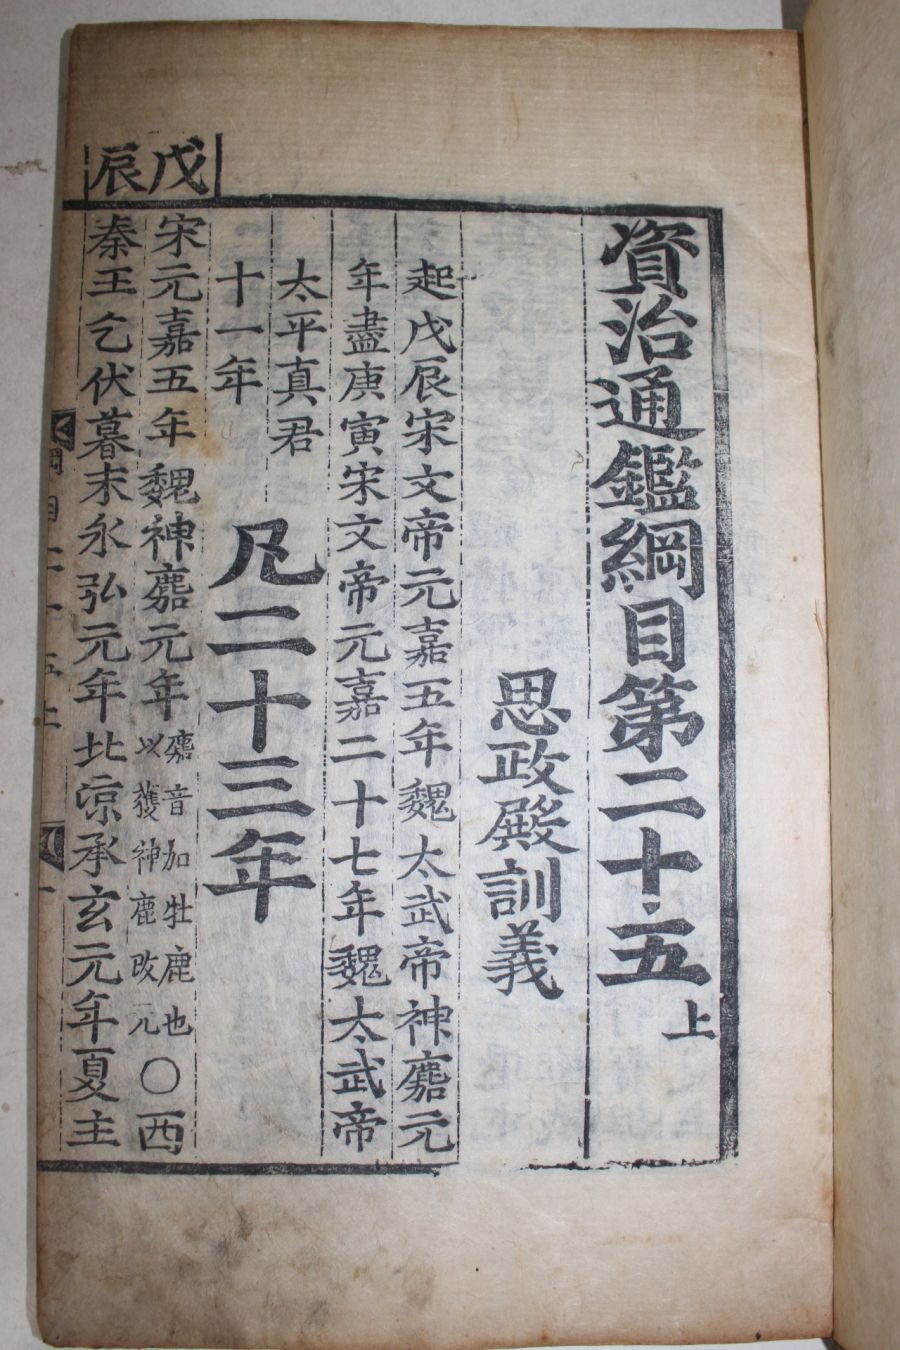 資治通鑑綱目第二十五上
思政殿訓義
起戊辰宋文帝元嘉五年魏太武帝神䴥元
年盡庚寅宋文帝元嘉二十七年魏太武帝
太平真君
十一年
凡二十三年
戊辰
宋元嘉五年魏神䴥元年䴥音加牡鹿也以獲神鹿改元○西
秦王乞伏暮末永弘元年北涼承玄元年夏主